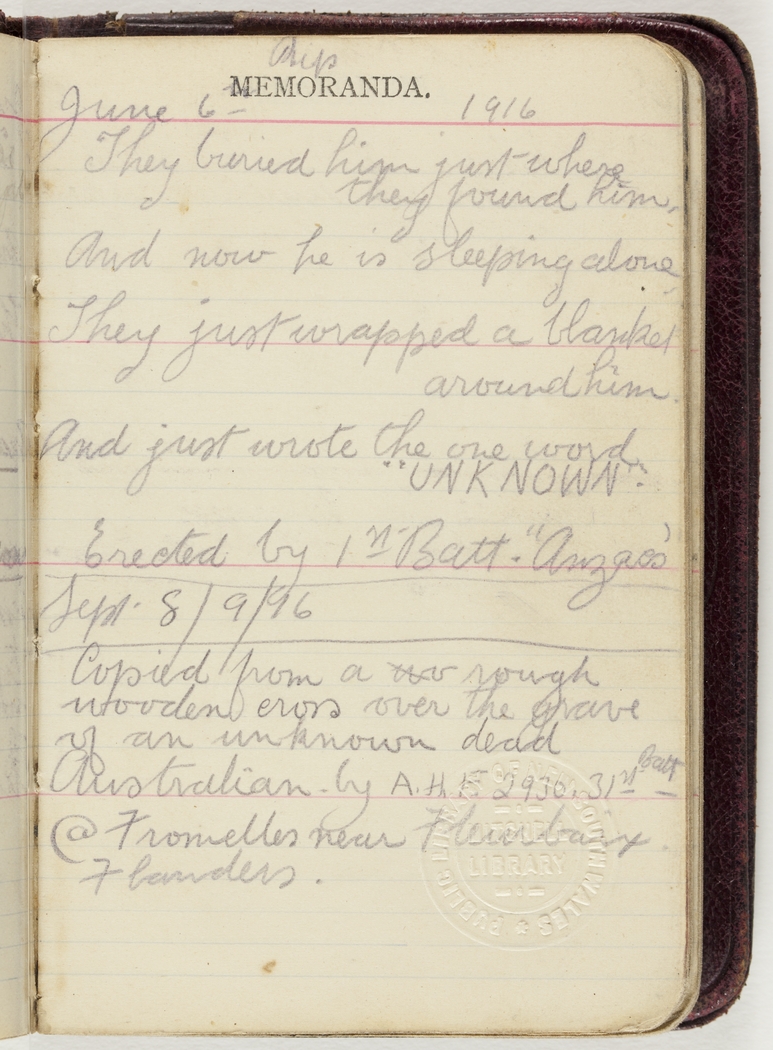 MEMORANDA.
June 6th 1916
They buried him just where
they found him,
And now he is sleeping alone
They just wrapped a blanket
around him.
And just wrote the one word
"UNKNOWN".
Erected by 1st Batt. "Anzacs"
Sept. 8/9/16
Copied from a rough
wooden cross over the grave
of an unknown dead
Australian - by A.H.K. 2936. 31st Batt
@ Fromelles near Fleurbaix
Flanders.
PUBLIC LIBRARY OF NEW SOUTH WALES
MITCHELL
LIBRARY